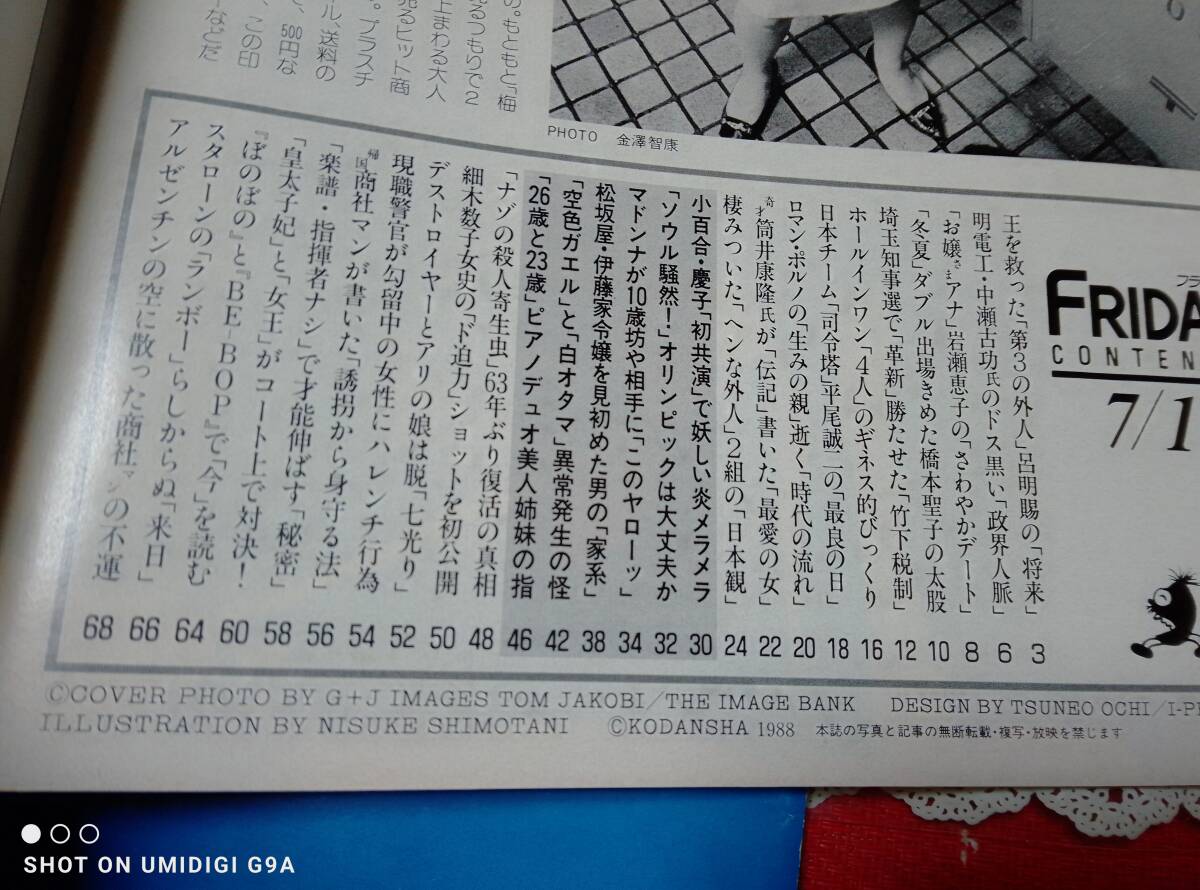 の。もともと「梅
るつもりで2
上まわる大人
売るヒット商
。プラスチ
ル、送料の
、500円な
、この印
ーなどだ
PHOTO 金澤智康
フラ
FRIDA
CONTEN
7/1
王を救った「第3の外人」呂明賜の「将来」 3
明電工・中瀬古功氏のドス黒い「政界人脈」 6
「お嬢さまアナ」岩瀬恵子の「さわやかデート」 8
「冬夏」ダブル出場きめた橋本聖子の太股 10
埼玉知事選で「革新」勝たせた「竹下税制」 12
ホールインワン「4人」のギネス的びっくり 16
日本チーム「司令塔」平尾誠二の「最良の日」 18
ロマン・ポルノの「生みの親」逝く「時代の流れ」 20
奇才筒井康隆氏が「伝記」書いた「最愛の女」 22
棲みついた「ヘンな外人」2組の「日本観」 24
小百合・慶子「初共演」で妖しい炎メラメラ 30
「ソウル騒然!」オリンピックは大丈夫か 32
マドンナが10歳坊や相手に「このヤローッ」 34
松坂屋・伊藤家令嬢を見初めた男の「家系」 38
「空色ガエル」と「白オタマ」異常発生の怪 42
「26歳と23歳」ピアノデュオ美人姉妹の指 46
「ナゾの殺人寄生虫」63年ぶり復活の真相 48
細木数子女史の「ド迫力」ショットを初公開 50
デストロイヤーとアリの娘は脱「七光り」 52
現職警官が勾留中の女性にハレンチ行為 54
帰国商社マンが書いた「誘拐から身守る法」 56
「楽譜・指揮者ナシ」で才能伸ばす「秘密」 58
「皇太子妃」と「女王」がコート上で対決! 60
『ぼのぼの』と『BE-BOP』で「今」を読む 64
スタローンの「ランボー」らしからぬ「来日」 66
アルゼンチンの空に散った商社マンの不運 68
©COVER PHOTO BY G+J IMAGES TOM JAKOBI/THE IMAGE BANK DESIGN BY TSUNEO OCHI/I-PR
ILLUSTRATION BY NISUKE SHIMOTANI ©KODANSHA 1988 本誌の写真と記事の無断転載・複写・放映を禁じます
SHOT ON UMIDIGI G9A